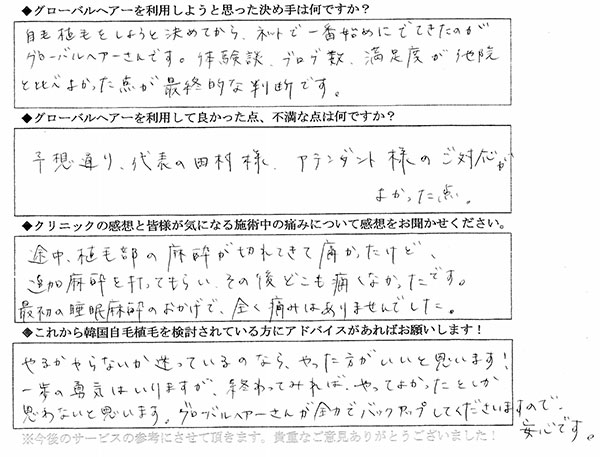 ◆グローバルヘアーを利用しようと思った決め手は何ですか？
自毛植毛をしようと決めてから、ネットで一番始めにでてきたのが
グローバルヘアーさんです。体験談、ブログ数、満足度が他院
と比べよかった点が最終的な判断です。
◆グローバルヘアーを利用して良かった点、不満な点は何ですか？
予想通り、代表の田村様、アテンダント様のご対応が
よかった点。
◆クリニックの感想と皆様が気になる施術中の痛みについて感想をお聞かせください。
途中、植毛部の麻酔が切れてきて痛かったけど、
追加麻酔を打ってもらい、その後どこも痛くなかったです。
最初の睡眠麻酔のおかげで、全く痛みはありませんでした。
◆これから韓国自毛植毛を検討されている方にアドバイスがあればお願いします！
やるかやらないか迷っているのなら、やった方がいいと思います！
一歩の勇気はいりますが、終わってみれば、やってよかったとしか
思わないと思います。グローバルヘアーさんが全力でバックアップしてくださいますので、
安心です。
※今後のサービスの参考にさせて頂きます。貴重なご意見ありがとうございました！